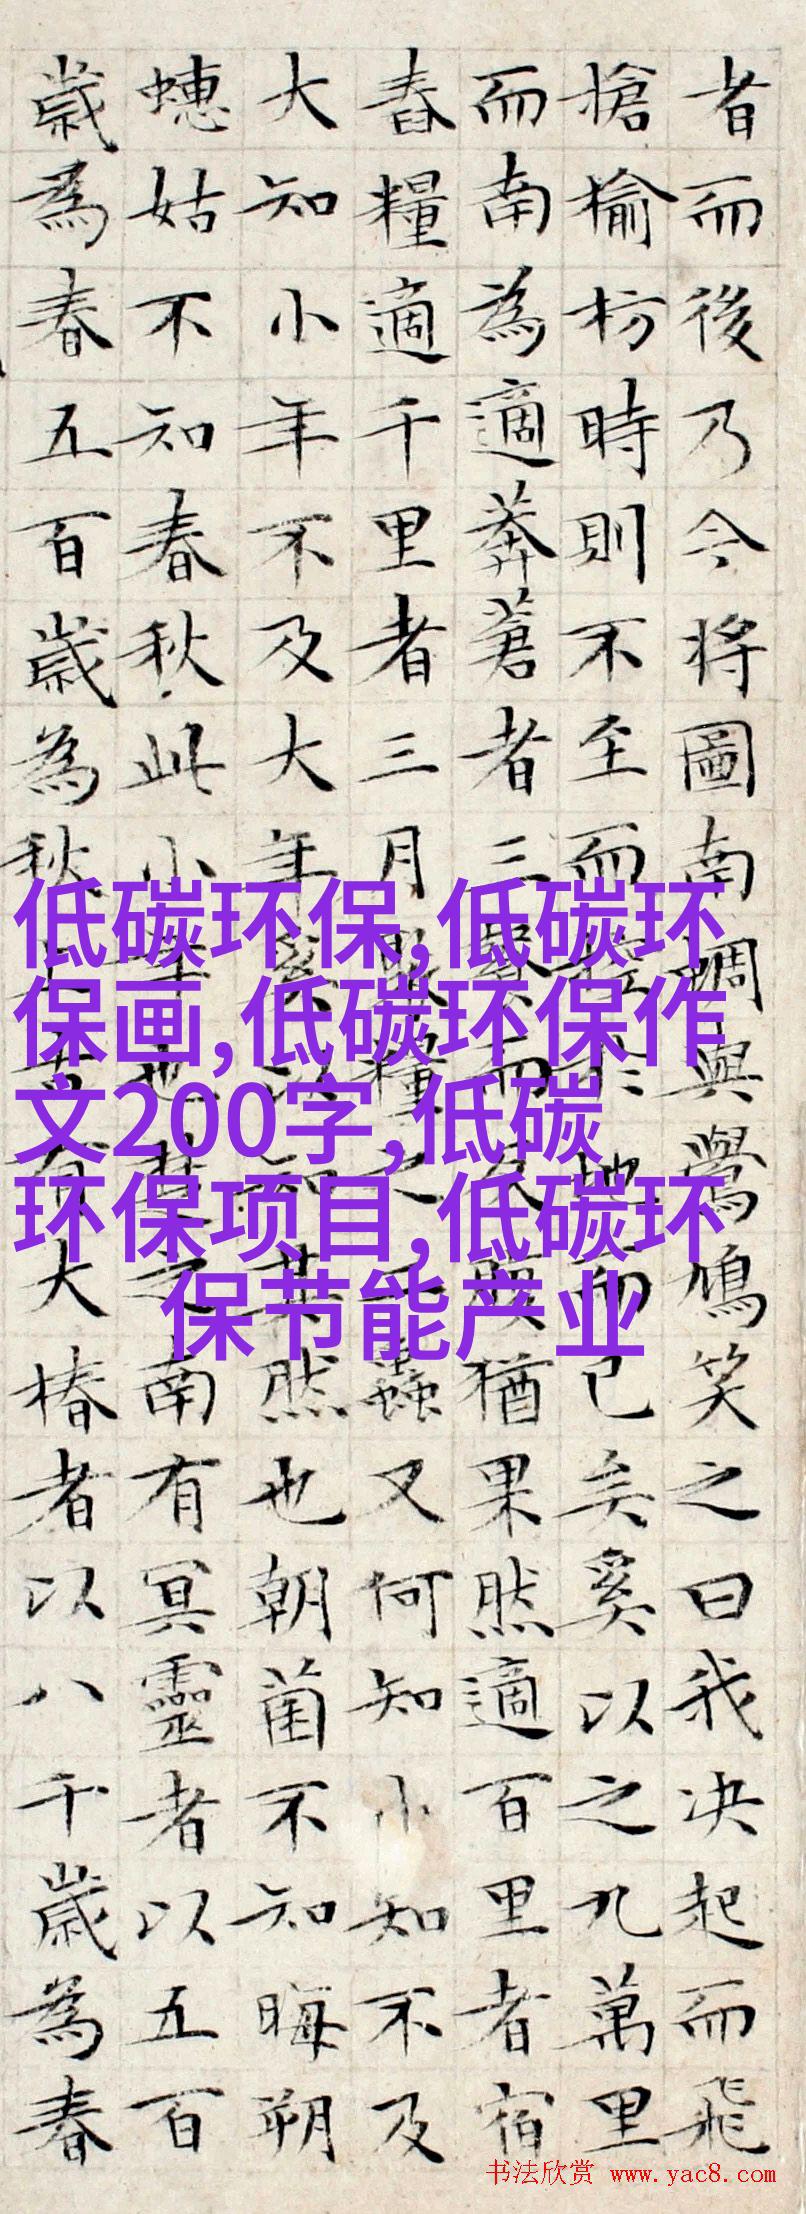 者而後乃今將圖南蜩與鷽鳩笑之曰我决起而飛
搶榆枋時則不至而控於地而已矣奚以之九萬里
而南為適莽蒼者三飡而反腹猶果然適百里者宿
舂糧適千里者三月聚糧之二蟲又何知小知不及
大知小年不及大年奚以知其然也朝菌不知晦朔
蟪姑不知春秋此小年也楚之南有冥靈者以五百
歲為春五百歲為秋上古有大椿者以八千歲為春
低碳环保,低碳环
保画,低碳环保作
文200字,低碳
环保项目,低碳环
保节能产业
书法欣赏 www.yac8.com